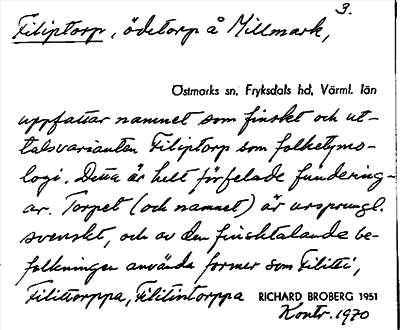 3.
Filiptorp, ödetorp å Millmark,
Östmarks sn, Fryksdals hd, Värml. län
uppfattar namnet som finskt och ut-
talsvarianten Filiptorp som folketymo-
logi. Detta är helt förfelade fundering-
ar. Torpet (och namnet) är ursprungl.
svenskt, och av den finsktalande be-
folkningen använda former som Filitti,
Filittorppa, Filitintorppa RICHARD BROBERG 1951
Kontr. 1970